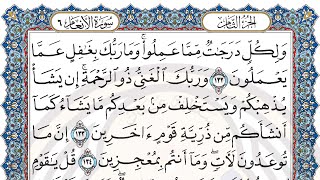 الجزء الثامن سورة الأنعام ٦
وَلِكُلٍّ دَرَجَٰتٌ مِّمَّا عَمِلُوا۟ ۚ وَمَا رَبُّكَ بِغَٰفِلٍ عَمَّا
يَعْمَلُونَ ١٣٢ وَرَبُّكَ ٱلْغَنِىُّ ذُو ٱلرَّحْمَةِ ۚ إِن يَشَأْ
يُذْهِبْكُمْ وَيَسْتَخْلِفْ مِنۢ بَعْدِكُم مَّا يَشَآءُ كَمَآ
أَنشَأَكُم مِّن ذُرِّيَّةِ قَوْمٍ ءَاخَرِينَ ١٣٣ إِنَّ مَا
تُوعَدُونَ لَءَاتٍ ۖ وَمَآ أَنتُم بِمُعْجِزِينَ ١٣٤ قُلْ يَٰقَوْمِ